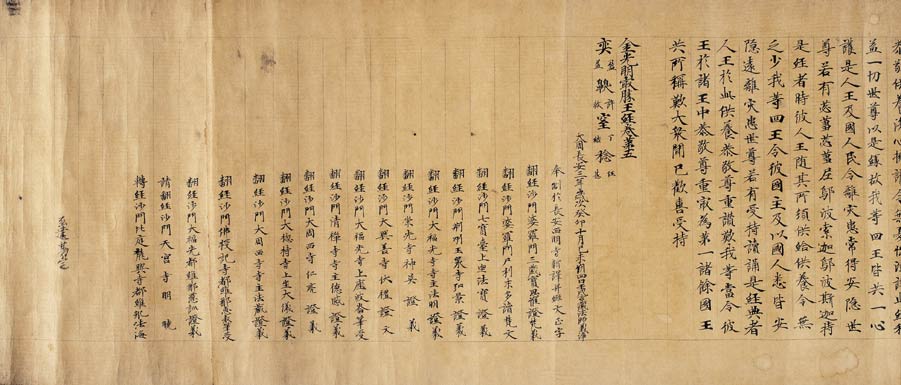 益一切世尊以是緣故我等四王皆共一心
護是人王及國人民令離灾患常得安隱世
尊若有苾蒭苾蒭尼鄔波索迦鄔波斯迦持
是經者時彼人王隨其所須供給供養令無
乏少我等四王令彼國主及以國人悉皆安
隱遠離灾患世尊若有受持讀誦是經典者
人王於此供養恭敬尊重讚歎我等當令彼
王於諸王中恭敬尊重最為第一諸餘國王
共所稱歎大衆聞已歡喜受持
金光明最勝王經卷第五
大周長安三年歲次癸卯十月己未朔四日壬戌三藏法師義淨
奉制於長安西明寺新譯并綴文正字
翻經沙門婆羅門三藏寶思惟證梵義
翻經沙門婆羅門尸利末多讀梵文
翻經沙門七寶臺上坐法寶證義
翻經沙門荊州玉泉寺弘景證義
翻經沙門大福光寺寺主法明證義
翻經沙門崇光寺神英證義
翻經沙門大興善寺伏禮證文
翻經沙門大福光寺上座波崙筆受
翻經沙門清禪寺寺主德感證義
翻經沙門大周西寺仁亮證義
翻經沙門大摠持寺上坐大儀證義
翻經沙門大周西寺寺主法藏證義
翻經沙門佛授記寺都維那惠表筆受
翻經沙門大福光寺都維那慈訓證義
請翻經沙門天宮寺明曉
轉經沙門北庭龍興寺都維那法海